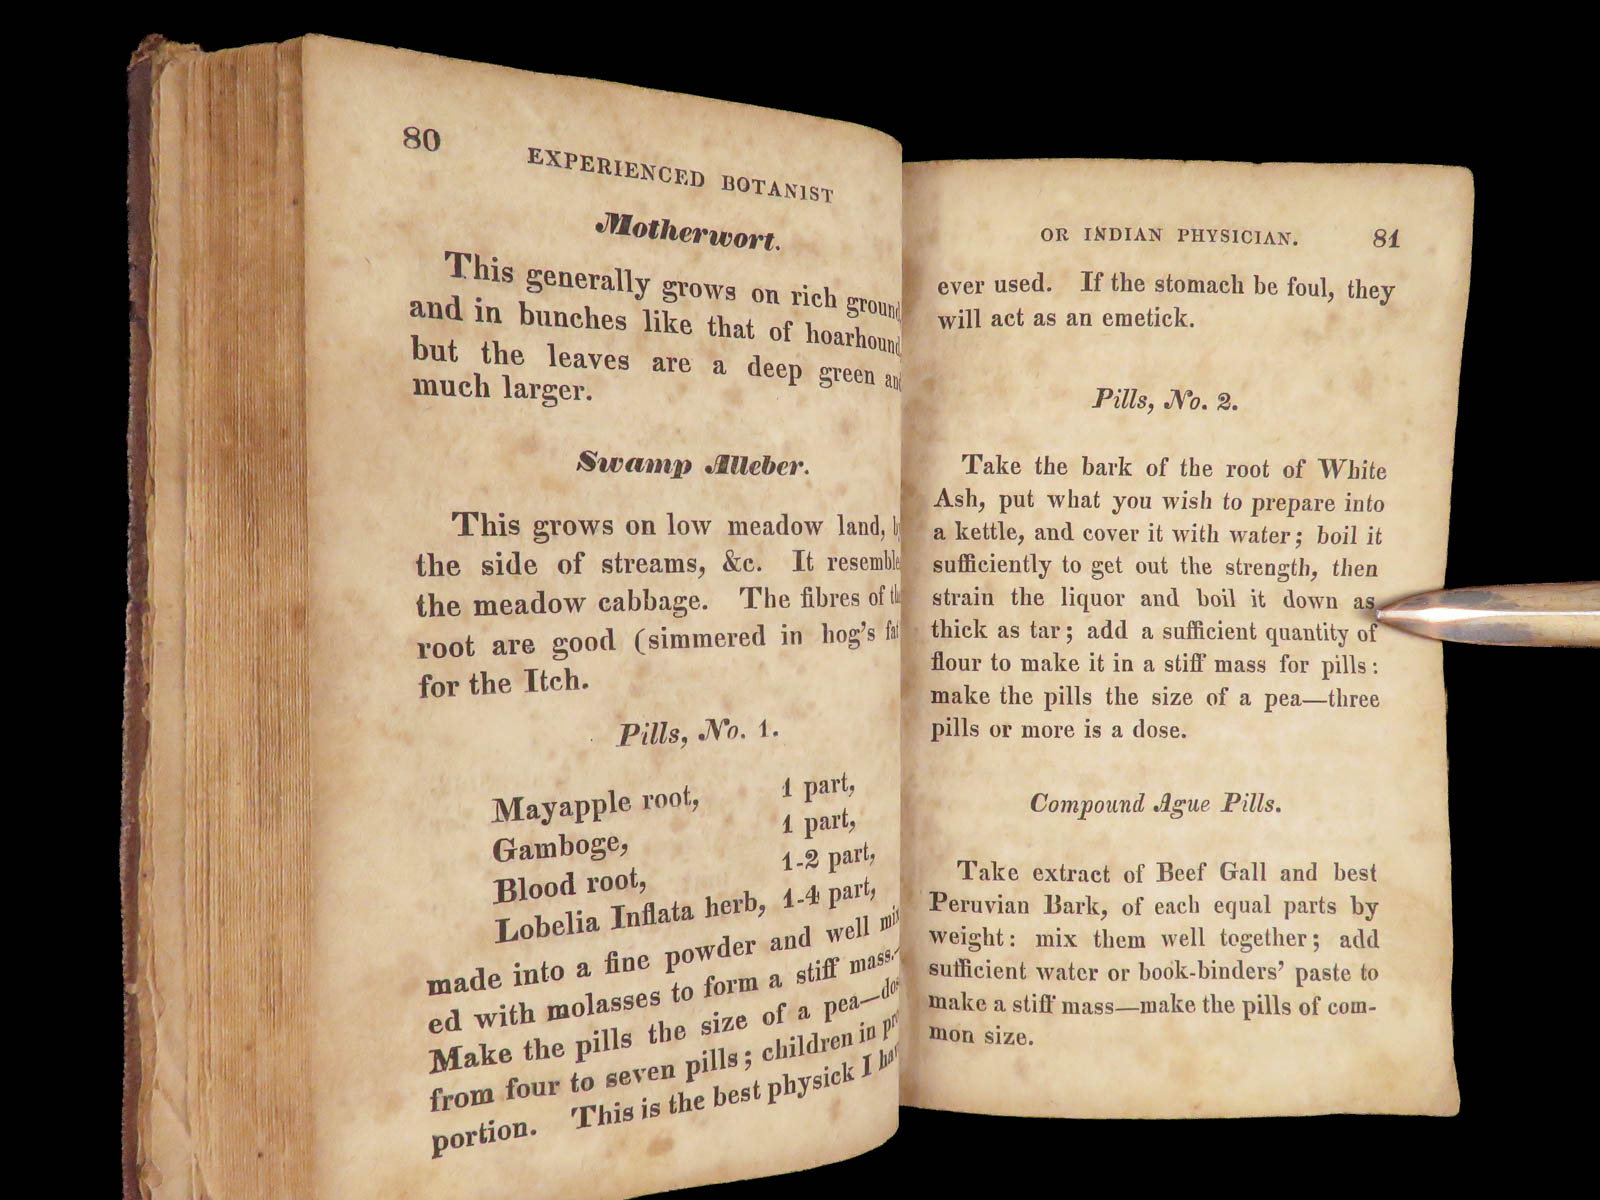 80
EXPERIENCED BOTANIST
Motherwort.
This generally grows on rich ground,
and in bunches like that of hoarhound,
but the leaves are a deep green and
much larger.
Swamp Alleber.
This grows on low meadow land, by
the side of streams, &c. It resembles
the meadow cabbage. The fibres of the
root are good (simmered in hog's fat
for the Itch.
Pills, No. 1.
Mayapple root, 1 part,
Gamboge, 1 part,
Blood root, 1-2 part,
Lobelia Inflata herb, 1-4 part,
made into a fine powder and well mix-
ed with molasses to form a stiff mass.—
Make the pills the size of a pea—dose
from four to seven pills; children in pro-
portion. This is the best physick I have
OR INDIAN PHYSICIAN. 81
ever used. If the stomach be foul, they
will act as an emetick.
Pills, No. 2.
Take the bark of the root of White
Ash, put what you wish to prepare into
a kettle, and cover it with water; boil it
sufficiently to get out the strength, then
strain the liquor and boil it down as
thick as tar; add a sufficient quantity of
flour to make it in a stiff mass for pills:
make the pills the size of a pea—three
pills or more is a dose.
Compound Ague Pills.
Take extract of Beef Gall and best
Peruvian Bark, of each equal parts by
weight: mix them well together; add
sufficient water or book-binders' paste to
make a stiff mass—make the pills of com-
mon size.